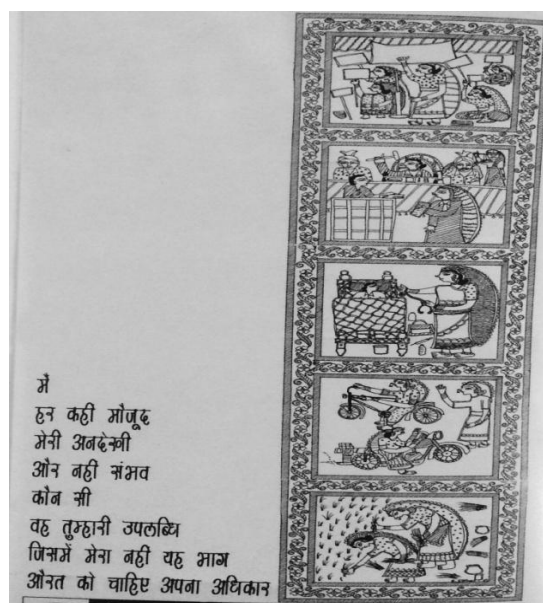 में
हर कही मौजूद
मेरी अनदेखी
और नही संभव
कौन सी
वह तुम्हारी उपलब्धि
जिसमें मेरा नही यह भाग
औरत को चाहिए अपना अधिकार